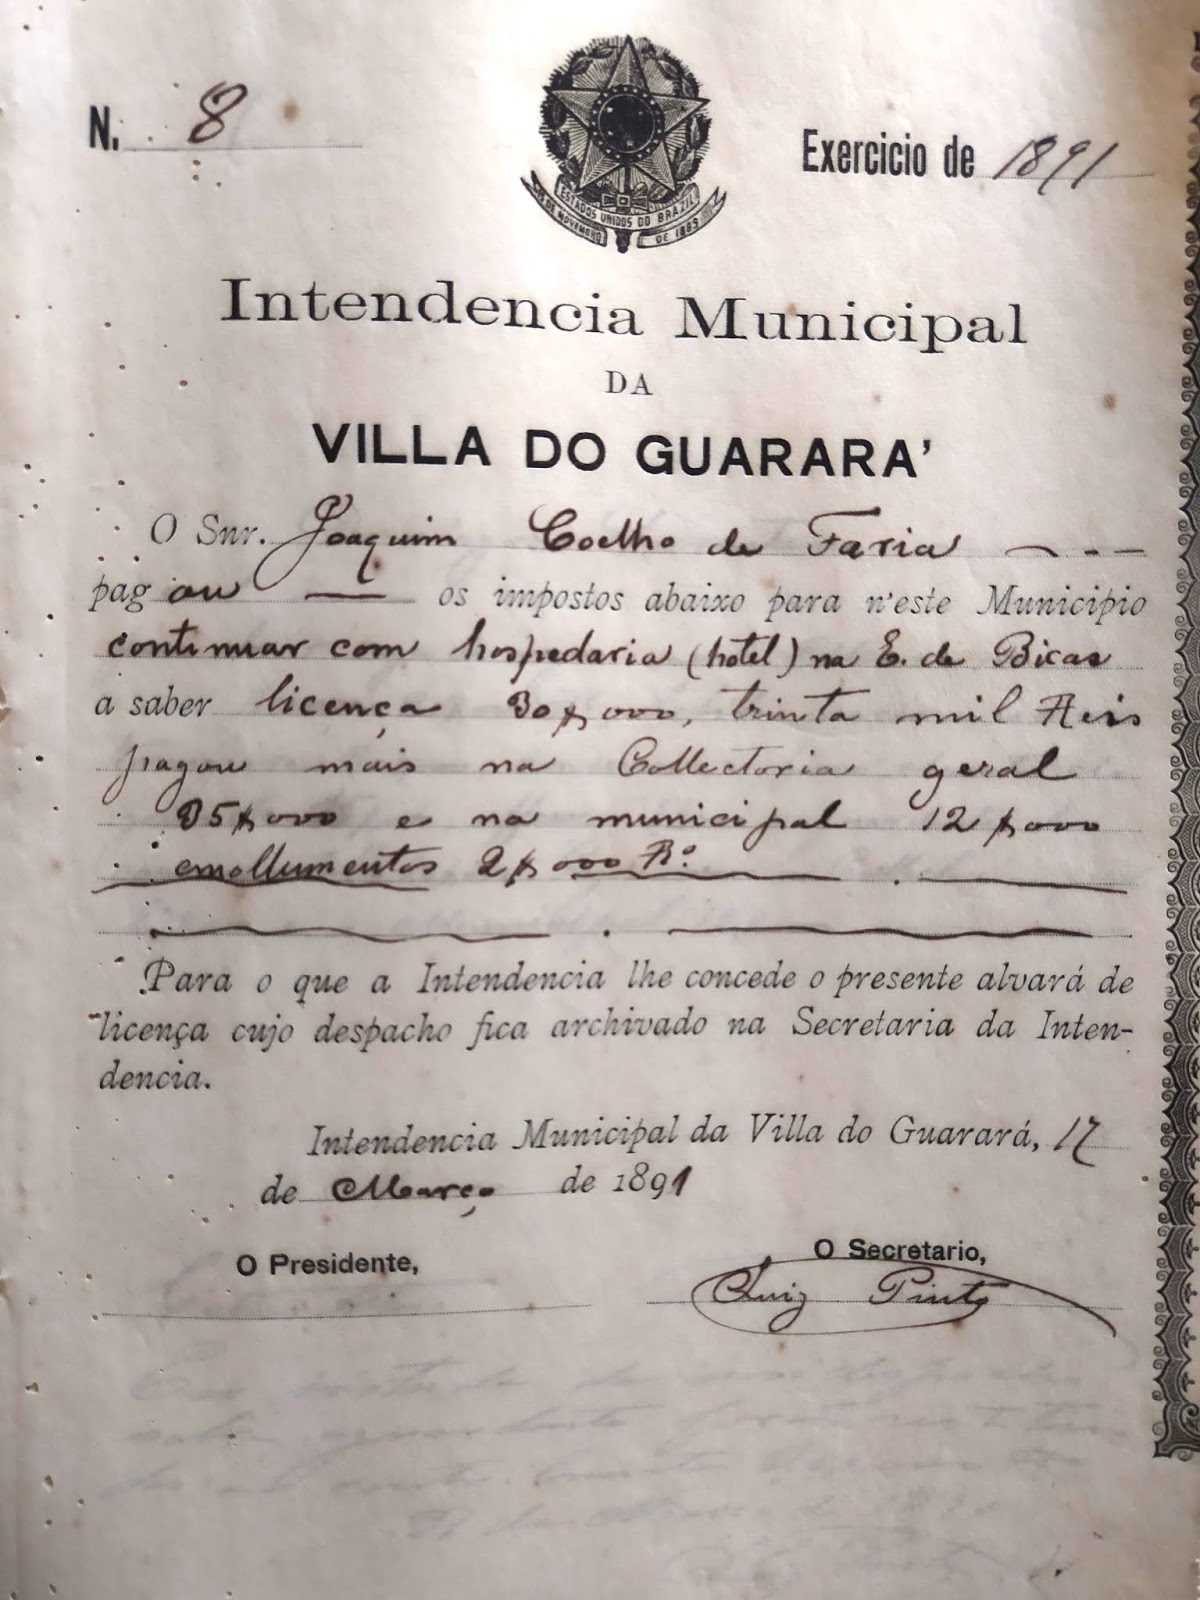 N. 8
Exercicio de 1891
ESTADOS UNIDOS DO BRAZIL
15 DE NOVEMBRO DE 1889
Intendencia Municipal
DA
VILLA DO GUARARA'
O Snr. Joaquim Coelho de Faria
pagou os impostos abaixo para n'este Municipio
continuar com hospedaria (hotel) na E. de Bicas
a saber licença 30$000, trinta mil Reis
pagou mais na Collectoria geral
35$000 e na municipal 12$000
emollumentos 2$000 Rs.
Para o que a Intendencia lhe concede o presente alvará de
licença cujo despacho fica archivado na Secretaria da Inten-
dencia.
Intendencia Municipal da Villa do Guarará, 17
de Março de 1891
O Presidente,
O Secretario,
Luiz Pinto